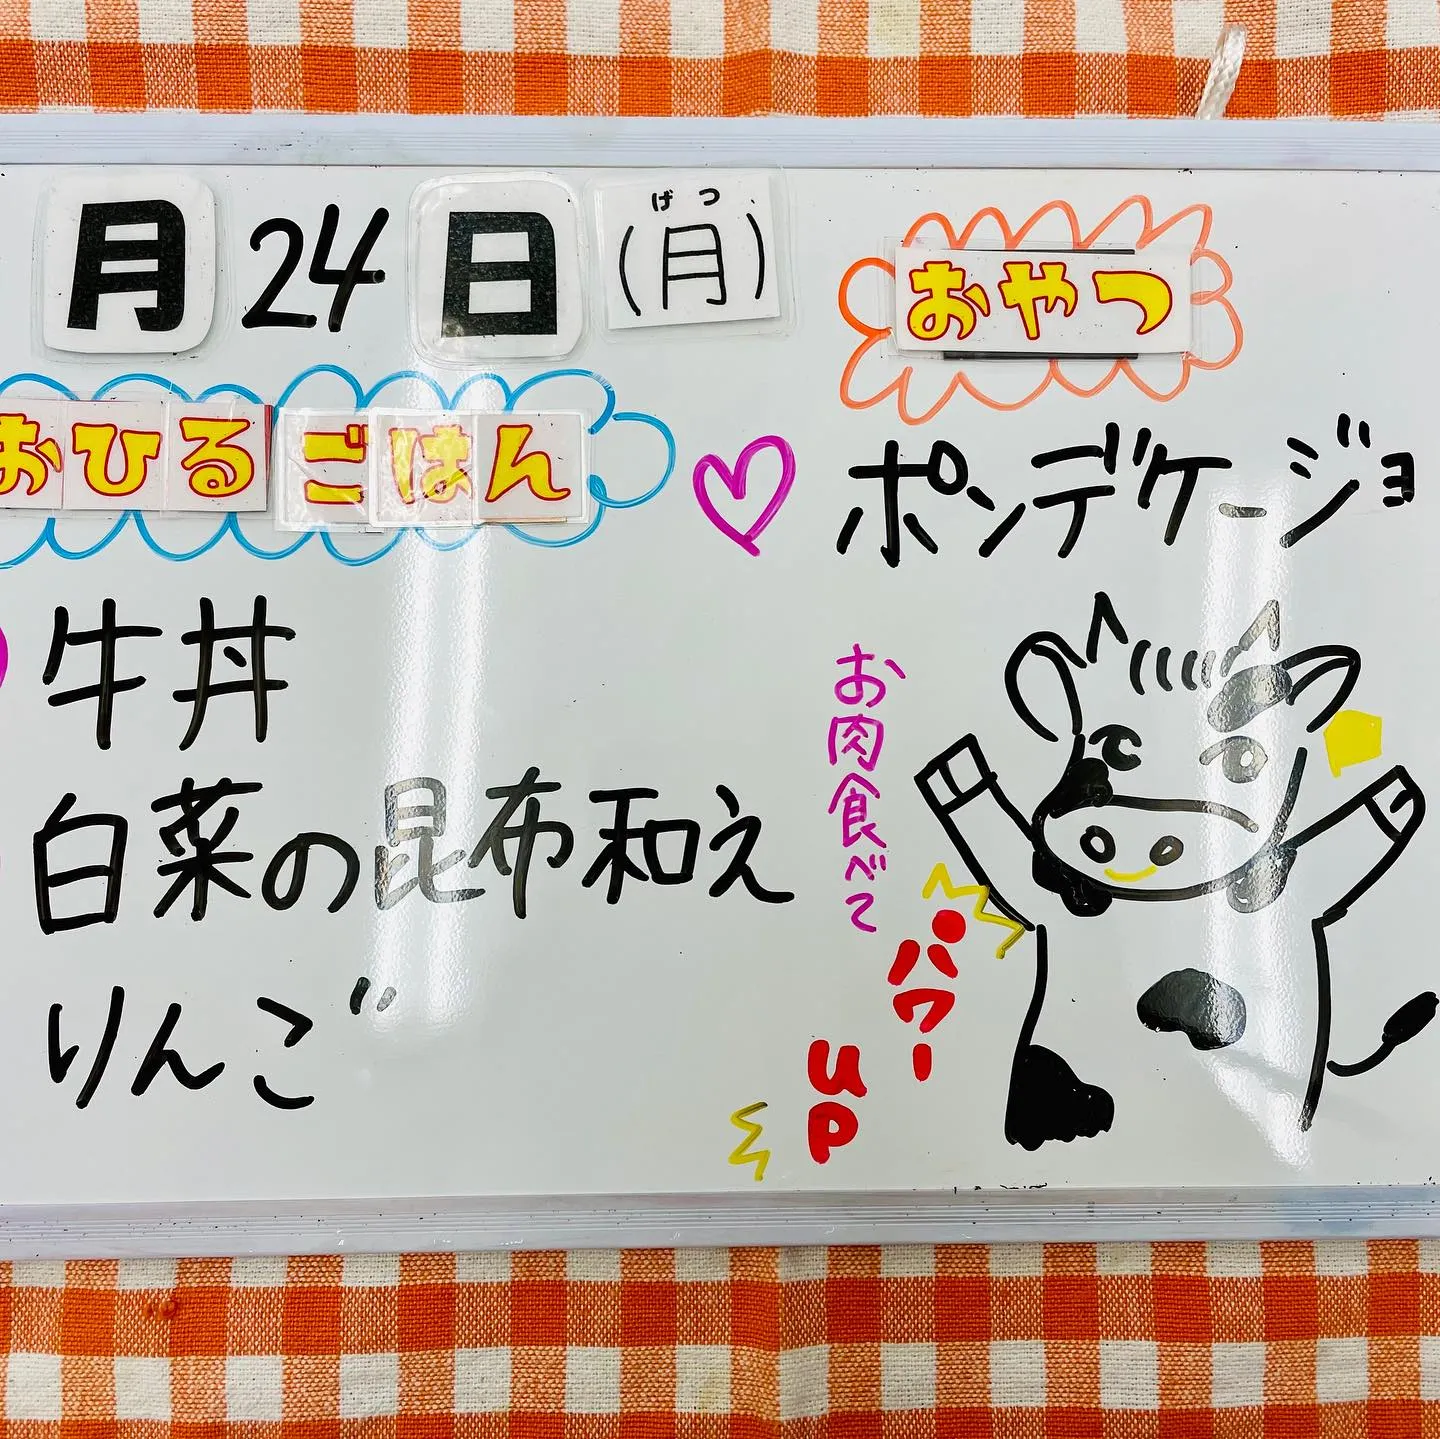 月24日(月)
げつ
おひるごはん
牛丼
白菜の昆布和え
りんご
おやつ
ポンデケージョ
お肉食べて
パワー
UP